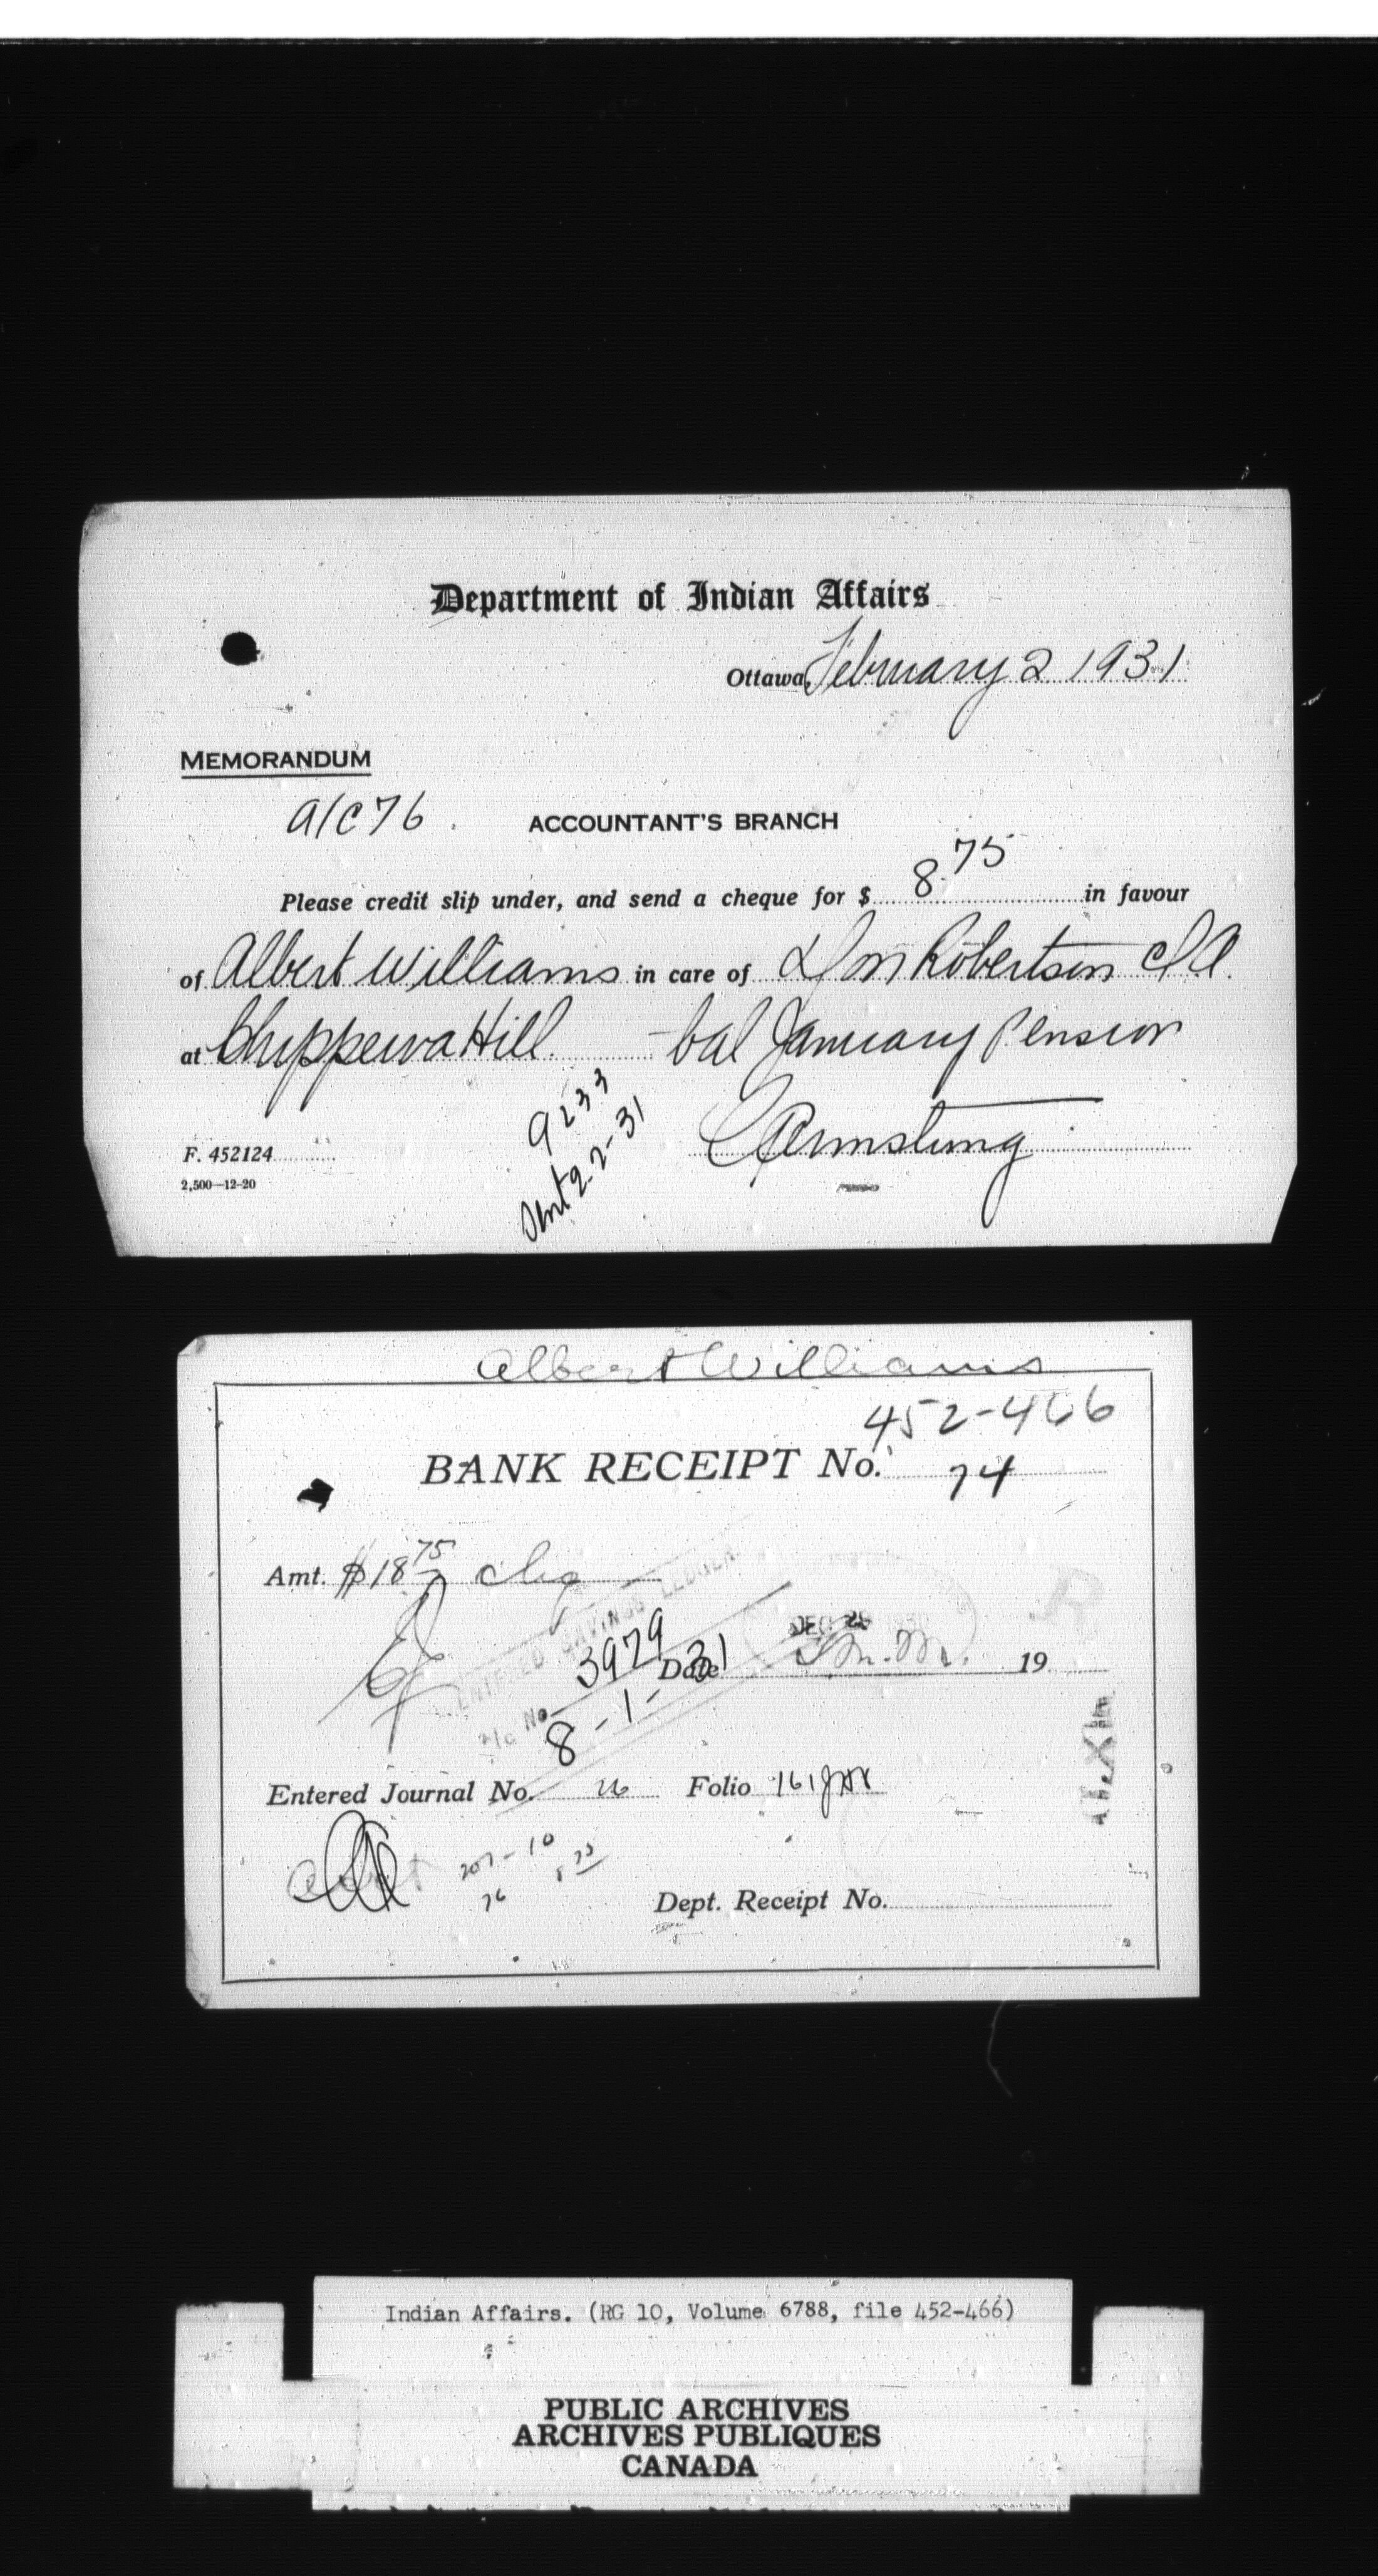 Department of Indian Affairs
Ottawa, February 2 1931
MEMORANDUM
a/c 76
ACCOUNTANT'S BRANCH
Please credit slip under, and send a cheque for $ 8.75 in favour
of Albert Williams in care of Robertson
at Chippewa Hill. - bal January Pension
9233
Sent 2-2-31
Armstrong
F. 452124
2,500-12-20
Albert Williams
452-466
BANK RECEIPT No. 74
Amt. $18 75 chq
ENTERED SAVINGS LEDGER
a/c No. 3979
8-1-31
DEC 26 1930
Date 19
Entered Journal No. 26 Folio 161
207-10
76
8 75
Dept. Receipt No.
Indian Affairs. (RG 10, Volume 6788, file 452-466)
PUBLIC ARCHIVES
ARCHIVES PUBLIQUES
CANADA